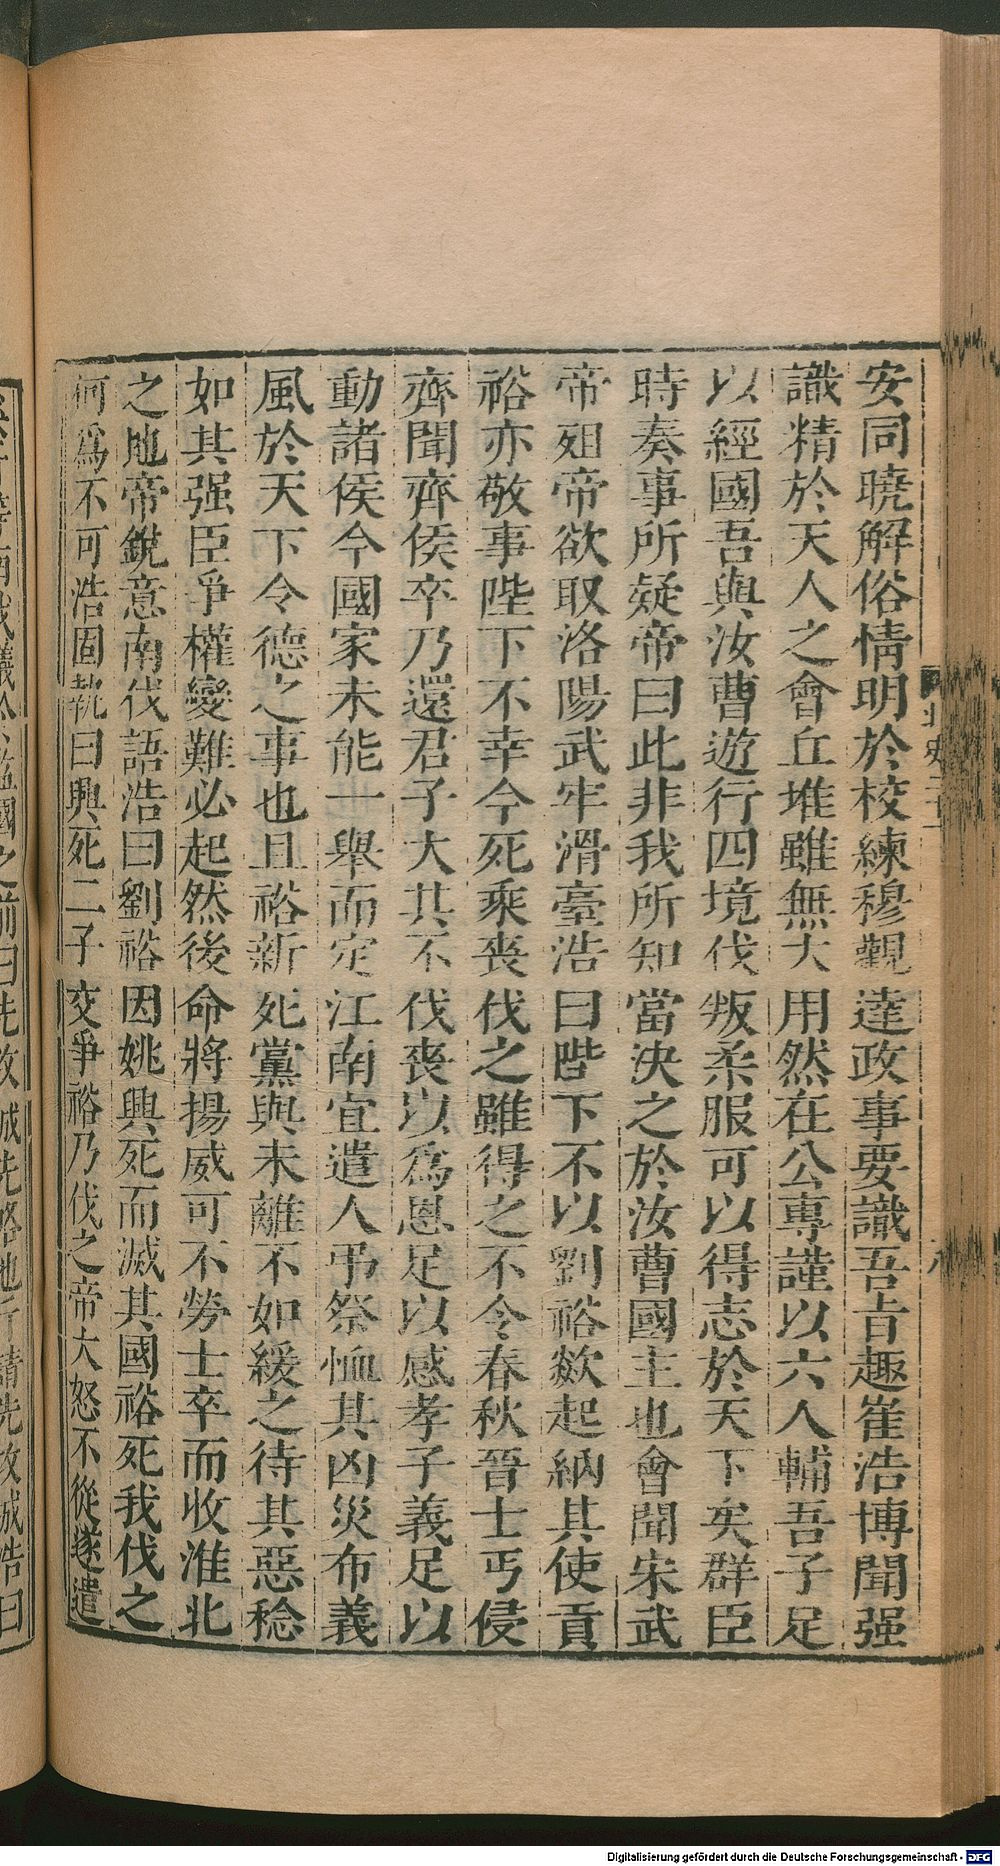 安同曉解俗情明於校練穆觀達政事要識吾旨趣崔浩博聞强
識精於天人之會丘堆雖無大用然在公專謹以六人輔吾子足
以經國吾與汝曹遊行四境伐叛柔服可以得志於天下矣群臣
時奏事所疑帝曰此非我所知當決之於汝曹國主也會聞宋武
帝殂帝欲取洛陽武牢滑臺浩曰陛下不以劉裕欻起納其使貢
裕亦敬事陛下不幸今死乘喪伐之雖得之不令春秋晉士丐侵
齊聞齊侯卒乃還君子大其不伐喪以爲恩足以感孝子義足以
動諸侯今國家未能一舉而定江南宜遣人弔祭恤其凶災布義
風於天下令德之事也且裕新死黨與未離不如緩之待其惡稔
如其强臣爭權變難必起然後命將揚威可不勞士卒而收淮北
之地帝銳意南伐語浩曰劉裕因姚興死而滅其國裕死我伐之
何爲不可浩固執曰興死二子交爭裕乃伐之帝大怒不從遂遣
北史二十一
八
監國之前曰先攻城先略地斤請先攻城浩曰
Digitalisierung gefördert durch die Deutsche Forschungsgemeinschaft - DFG